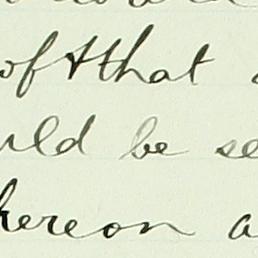 of & that
uld be se
hereon a